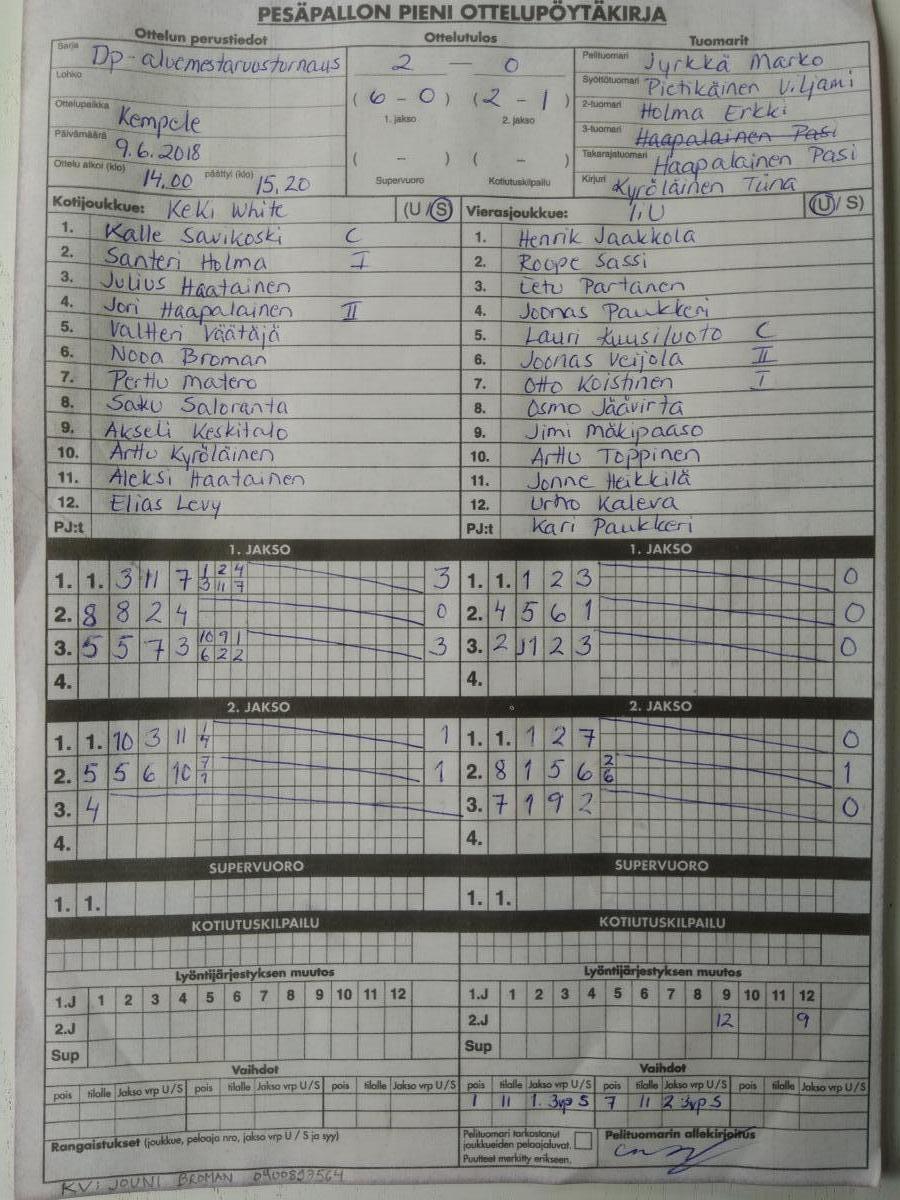 PESÄPALLON PIENI OTTELUPÖYTÄKIRJA
Ottelun perustiedot Ottelutulos Tuomarit
Sarja Dp-aluemestaruusturnaus 2 — 0 Pelituomari Jyrkkä Marko
Lohko (6 - 0) (2 - 1) Syöttötuomari Pietikäinen Viljami
1. jakso 2. jakso 2-tuomari Holma Erkki
Ottelupaikka Kempele 3-tuomari Haapalainen Pasi
Päivämäärä 9.6.2018 ( - ) ( - ) Takarajatuomari Haapalainen Pasi
Ottelu alkoi (klo) 14.00 päättyi (klo) 15.20 Supervuoro Kotiutuskilpailu Kirjuri Kyröläinen Tiina
Kotijoukkue: KeKi White (U/S) Vierasjoukkue: IiU (U/S)
1. Kalle Savikoski C 1. Henrik Jaakkola
2. Santeri Holma I 2. Roope Sassi
3. Julius Haatainen 3. Eetu Partanen
4. Jori Haapalainen II 4. Joonas Paukkeri
5. Valtteri Väätäjä 5. Lauri Kuusiluoto C
6. Nooa Broman 6. Joonas Veijola II
7. Perttu Matero 7. Otto Koistinen I
8. Saku Saloranta 8. Osmo Jäävirta
9. Akseli Keskitalo 9. Jimi Mäkipaaso
10. Arttu Kyröläinen 10. Arttu Toppinen
11. Aleksi Haatainen 11. Jonne Heikkilä
12. Elias Levy 12. Urho Kaleva
PJ:t PJ:t Kari Paukkeri
1. JAKSO 1. JAKSO
1. 1. 3 11 7 1 2 4 3 11 7 3 1. 1. 1 2 3 0
2. 8 8 2 4 0 2. 4 5 6 1 0
3. 5 5 7 3 10 9 1 6 2 2 3 3. 2 11 2 3 0
4. 4.
2. JAKSO 2. JAKSO
1. 1. 10 3 11 4 1 1. 1. 1 2 7 0
2. 5 5 6 10 7 1 1 2. 8 1 5 6 2 6 1
3. 4 3. 7 1 9 2 0
4. 4.
SUPERVUORO SUPERVUORO
1. 1. 1. 1.
KOTIUTUSKILPAILU KOTIUTUSKILPAILU
Lyöntijärjestyksen muutos Lyöntijärjestyksen muutos
1.J 1 2 3 4 5 6 7 8 9 10 11 12 1.J 1 2 3 4 5 6 7 8 9 10 11 12
2.J 2.J 12 9
Sup Sup
Vaihdot Vaihdot
pois tilalle Jakso vrp U/S pois tilalle Jakso vrp U/S pois tilalle Jakso vrp U/S pois tilalle Jakso vrp U/S pois tilalle Jakso vrp U/S pois tilalle Jakso vrp U/S
1 11 1. 3vp S 7 11 2 3vp S
Rangaistukset (joukkue, pelaaja nro, jakso vrp U / S ja syy) Pelituomari tarkastanut joukkueiden pelaajaluvat. Pelituomarin allekirjoitus
Puutteet merkitty erikseen.
KV: JOUNI BROMAN 0400893564